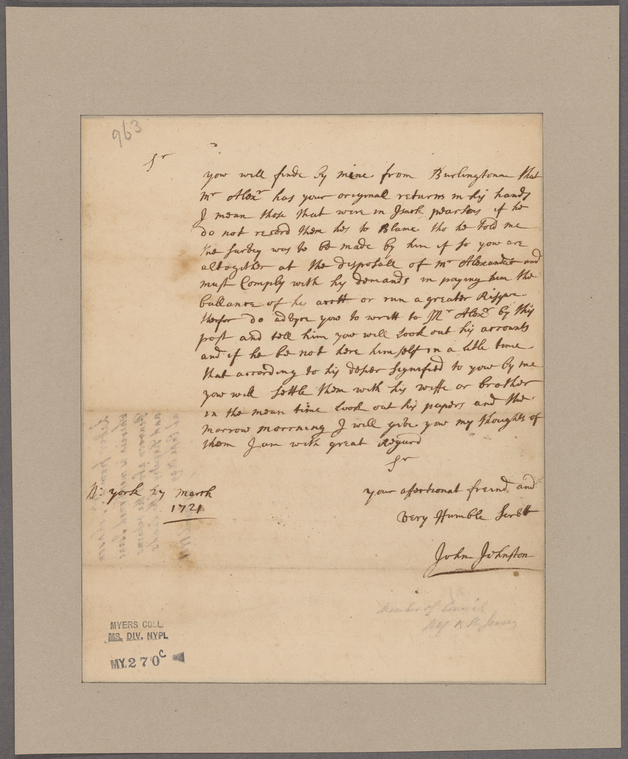 963
Sr
you will finde by mine from Burlingtone that
Mr Alexr has your orrignal returns in his hands
I mean those that were in Isack pearsons if he
do not record them hes to Blame tho he Told me
The Survey was to be made by him if so you are
altogether at the disposall of Mr Alexander and
must Comply with his demands in paying him the
ballance of his acott or run a greater
therfor do advyce you to writt to Mr Alexr by this
post and tell him you will Look out his accounts
and if he be not here himself in a litle time
that according to his desyer signifyed to you by me
you will settle them with his wiffe or brother
in the mean time Look out his papers and the
morrow morrning I will give you my thoughts of
them I am with great Regard
Sr
your affectionat freind and
very Humble Servtt
John Johnston
N: york 27 March
1721
Member of Council
of N. Jersey
MYERS COLL.
MS. DIV. NYPL
MY. 270c